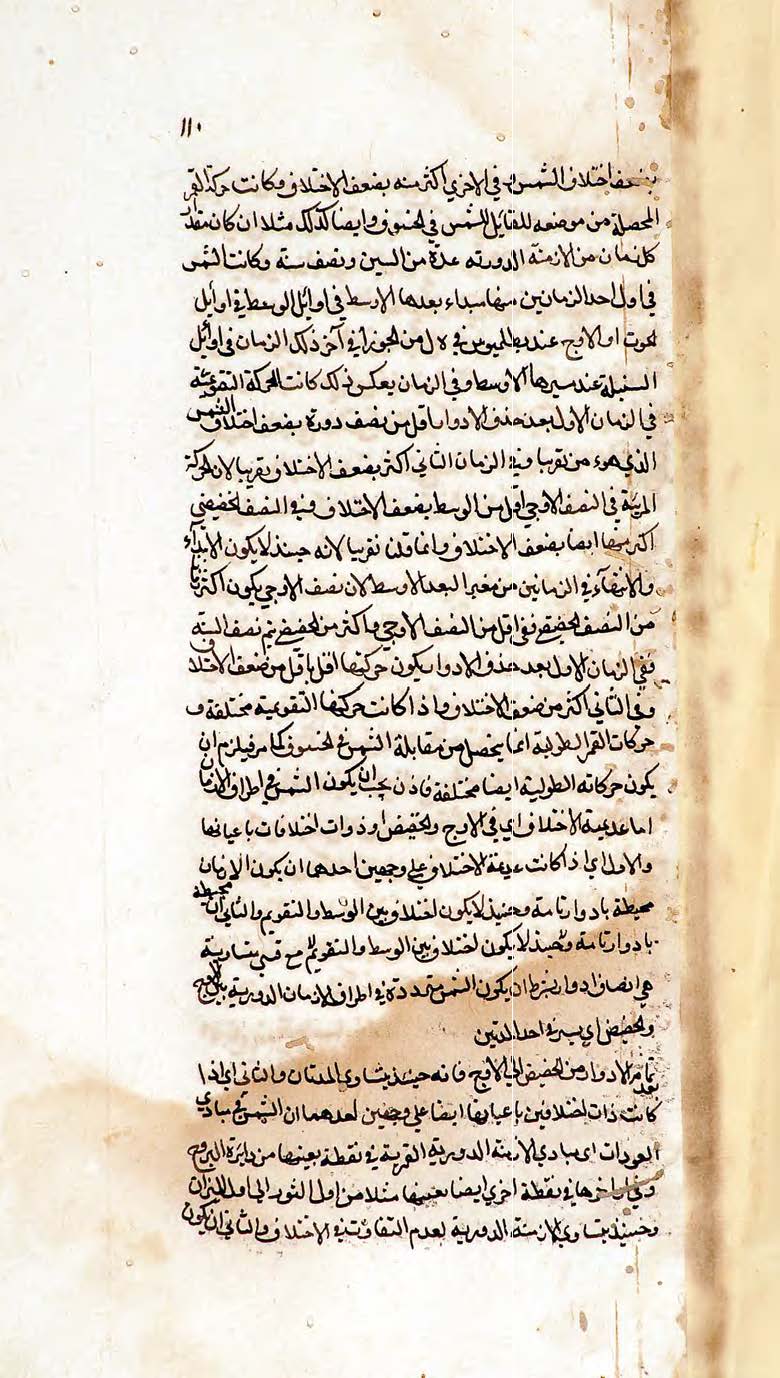 ١١٠
بضعف اختلاف الشمس وفي الاخري اكثر منه بضعف الاختلاف وكانت حركة القمر
المحصلة من موضعه المقابل للشمس في الخسوف وايضا كذلك مثلا ان كان مقدار
كل زمان من الازمنة الدورية عدة من السنين ونصف سنة وكانت الشمس
في اول احد الزمانين منها مبداء بعدها الاوسط في اوايل
الحوت او الاوج عند بطلميوس في ه ل من الجوزا في آخر ذلك الزمان في اوائل
السنبلة عند سيرها الاوسط وفي الزمان بعكس ذلك كانت الحركة التقويمية
في الزمان الاول بعد حذف الادوار اقل من نصف دورة بضعف اختلاف الشمس
الذي هو من تقريبا وفي الزمان الثاني اكثر بضعف الاختلاف تقريبا لان الحركة
المرئية في النصف الاوجي اقل من الوسط بضعف الاختلاف وفي النصف الحضيضي
اكثر منها ايضا بضعف الاختلاف وانما قلنا تقريبا لانه حينئذ لا يكون الابتدآء
والانتهآء في الزمانين من البعد الاوسط لان نصف الاوجي يكون اكثر زمانا
من النصف الحضيضي ففي اقل من النصف الاوجي واكثر من الحضيضي يتم نصف السنة
ففي الزمان الاول بعد حذف الادوار يكون حركتها اقل باقل من ضعف الاختلاف
وفي الثاني اكثر من ضعف الاختلاف واذا كانت حركتها التقويمية مختلفة و
حركات القمر الطولية انما يحصل من مقابلة الشمس في الخسوف كما مر فيلزم ان
يكون حركاته الطولية ايضا مختلفة فاذن يجب ان يكون الشمس في اطراف الازمان
اما عديمة الاختلاف اي في الاوج والحضيض او ذوات اختلافات باعيانها
والاول اي اذا كانت عديمة الاختلاف علي وجهين احدهما ان يكون الازمان
محيطة بادوار تامة وحينئذ لا يكون اختلاف بين الوسط والتقويم والثاني ان محيطة
بادوار تامة وحينئذ لا يكون اختلاف بين الوسط والتقويم لا مع قسي متساوية
هي انصاف ادوار بشرط ان يكون الشمس مترددة في اطراف الازمان الدورية بين الاوج
والحضيض اي يسير في احد المدتين
بعد تمام الادوار من الحضيض الي الاوج فانه حينئذ يتساوي المدتان والثاني اي اذا
كانت ذات اختلافين باعيانها ايضا علي وجهين احدهما ان الشمس في مبادي
العودات اي مبادي الازمنة الدورية القمرية في نقطة بعينها من دايرة البروج
وفي اواخرها في نقطة اخري ايضا بعينها مثلا من اول الثور الي اول الميزان
وحينئذ يتساوي الازمنة الدورية لعدم التفاوت في الاختلاف والثاني ان يكون